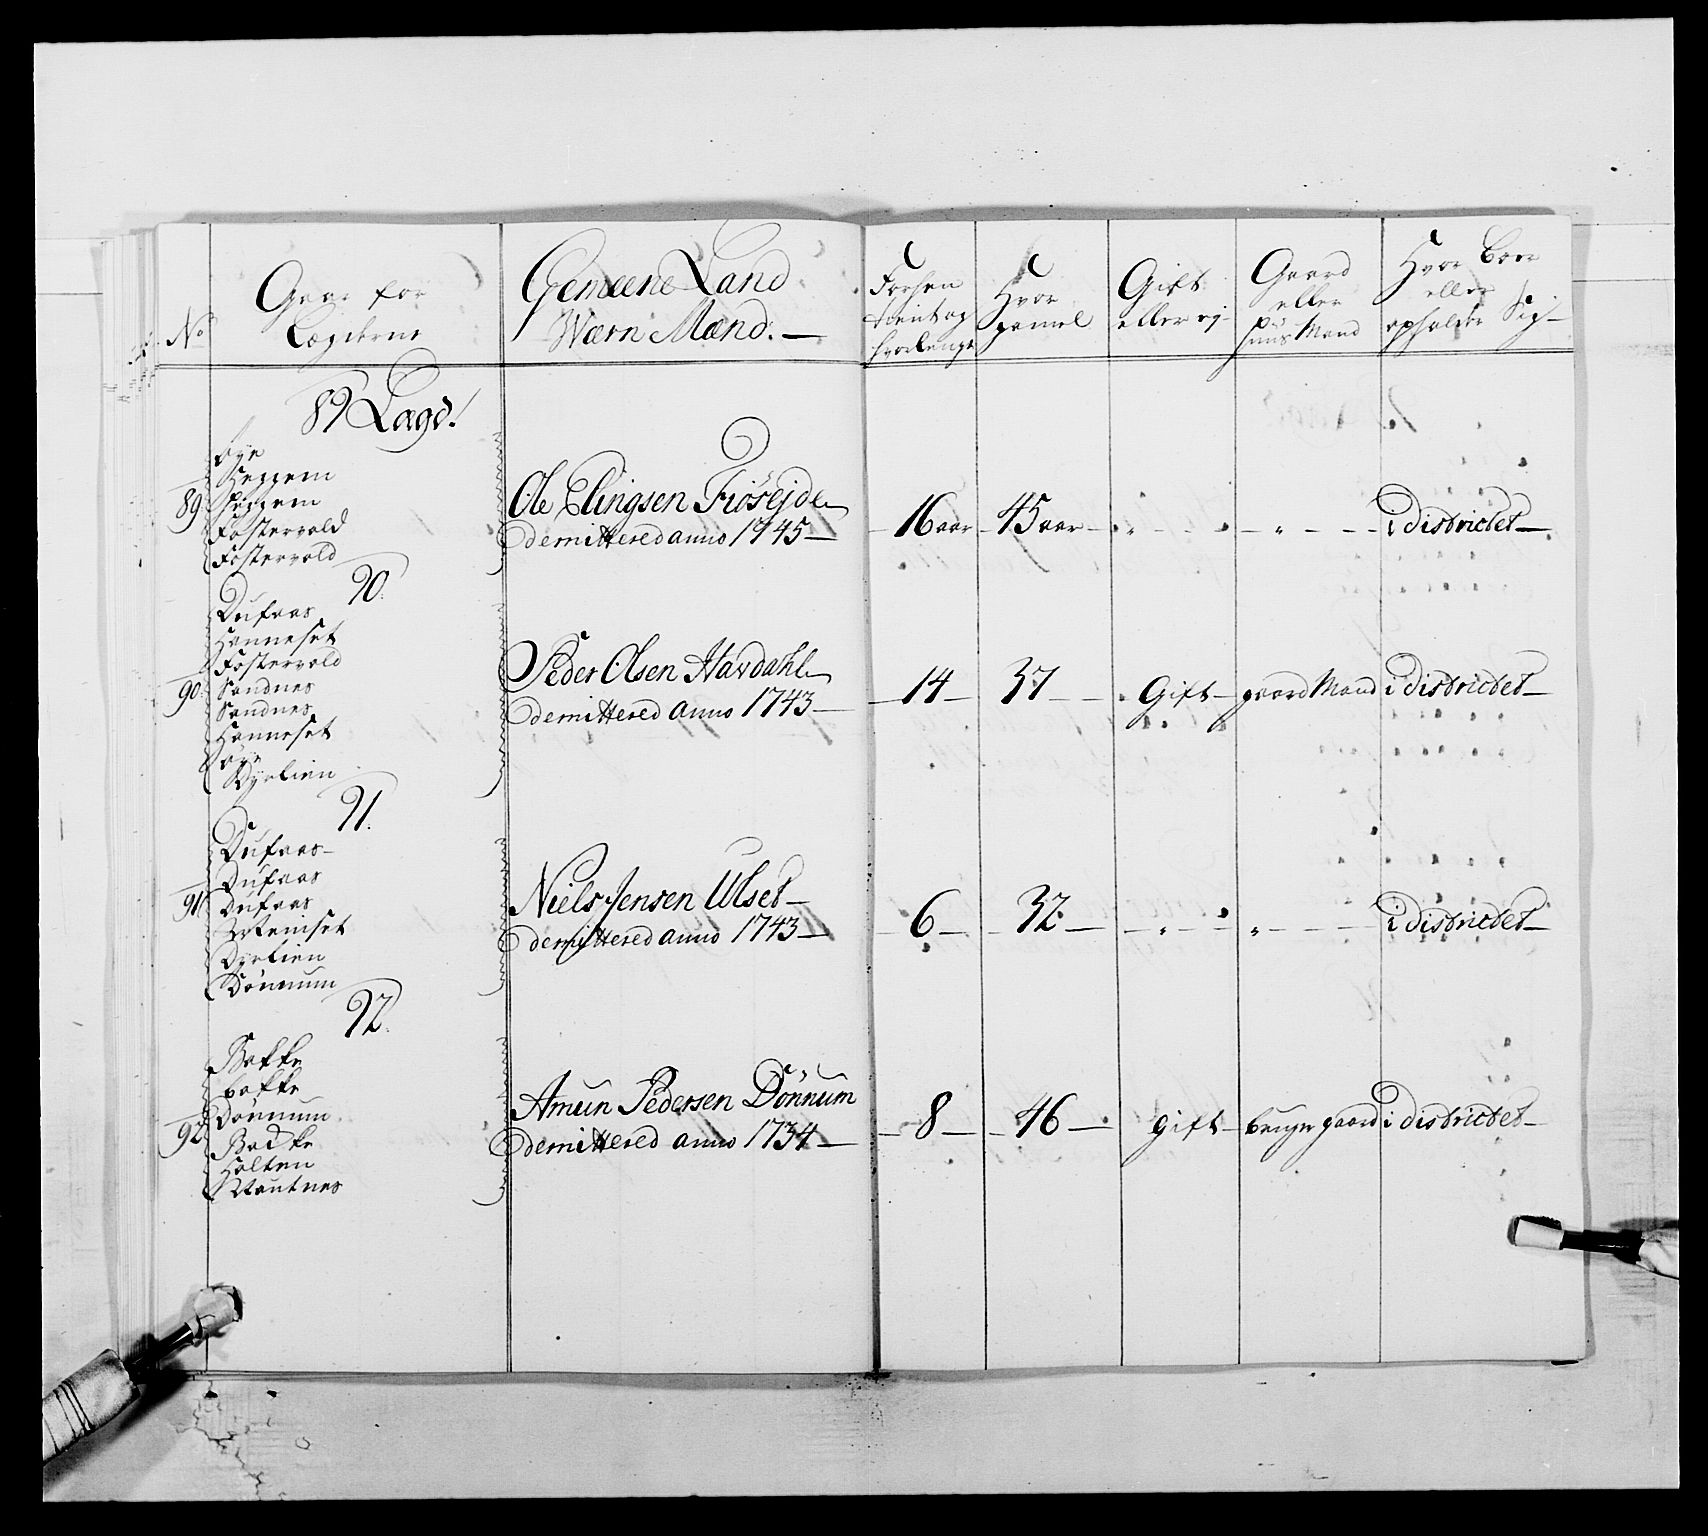 No
Gaar for
Lægderne
Gemeene Land
Wærn Mænd. —
Forhen
tient og
hvorlenge
Hvor
gamel
Gift
eller ej
Gaard
eller
huus Mand
Hvor boer
eller
opholder Sig
89 Lægd.
Øye
Heggem
89 Heggem
Fostervold
Fostervold
Ole Elingsen Fiöseide
demittered anno 1745 —
16 aar 45 aar i districtet —
90.
Dufaas
Hanneset
Fostervold
90 Sandnes
Sandnes
Hanneset
Øye
Dyrlien
Peder Olsen Havdahl
demittered anno 1743 —
14 — 37 — Gift — gaard Mand i districtet —
91.
Dufaas —
Dufaas
91 Dufaas
Dyrlien
Dönnum
Niels Jensen Ulset —
demittered anno 1743 —
6 — 32 — i districtet —
92.
Bakke
bakke
Dönnum
92 Backe
Holten
Nautnes
Amun Pedersen Dönnum
demittered anno 1734 —
8 — 46 — gift — bruger gaard i districtet —